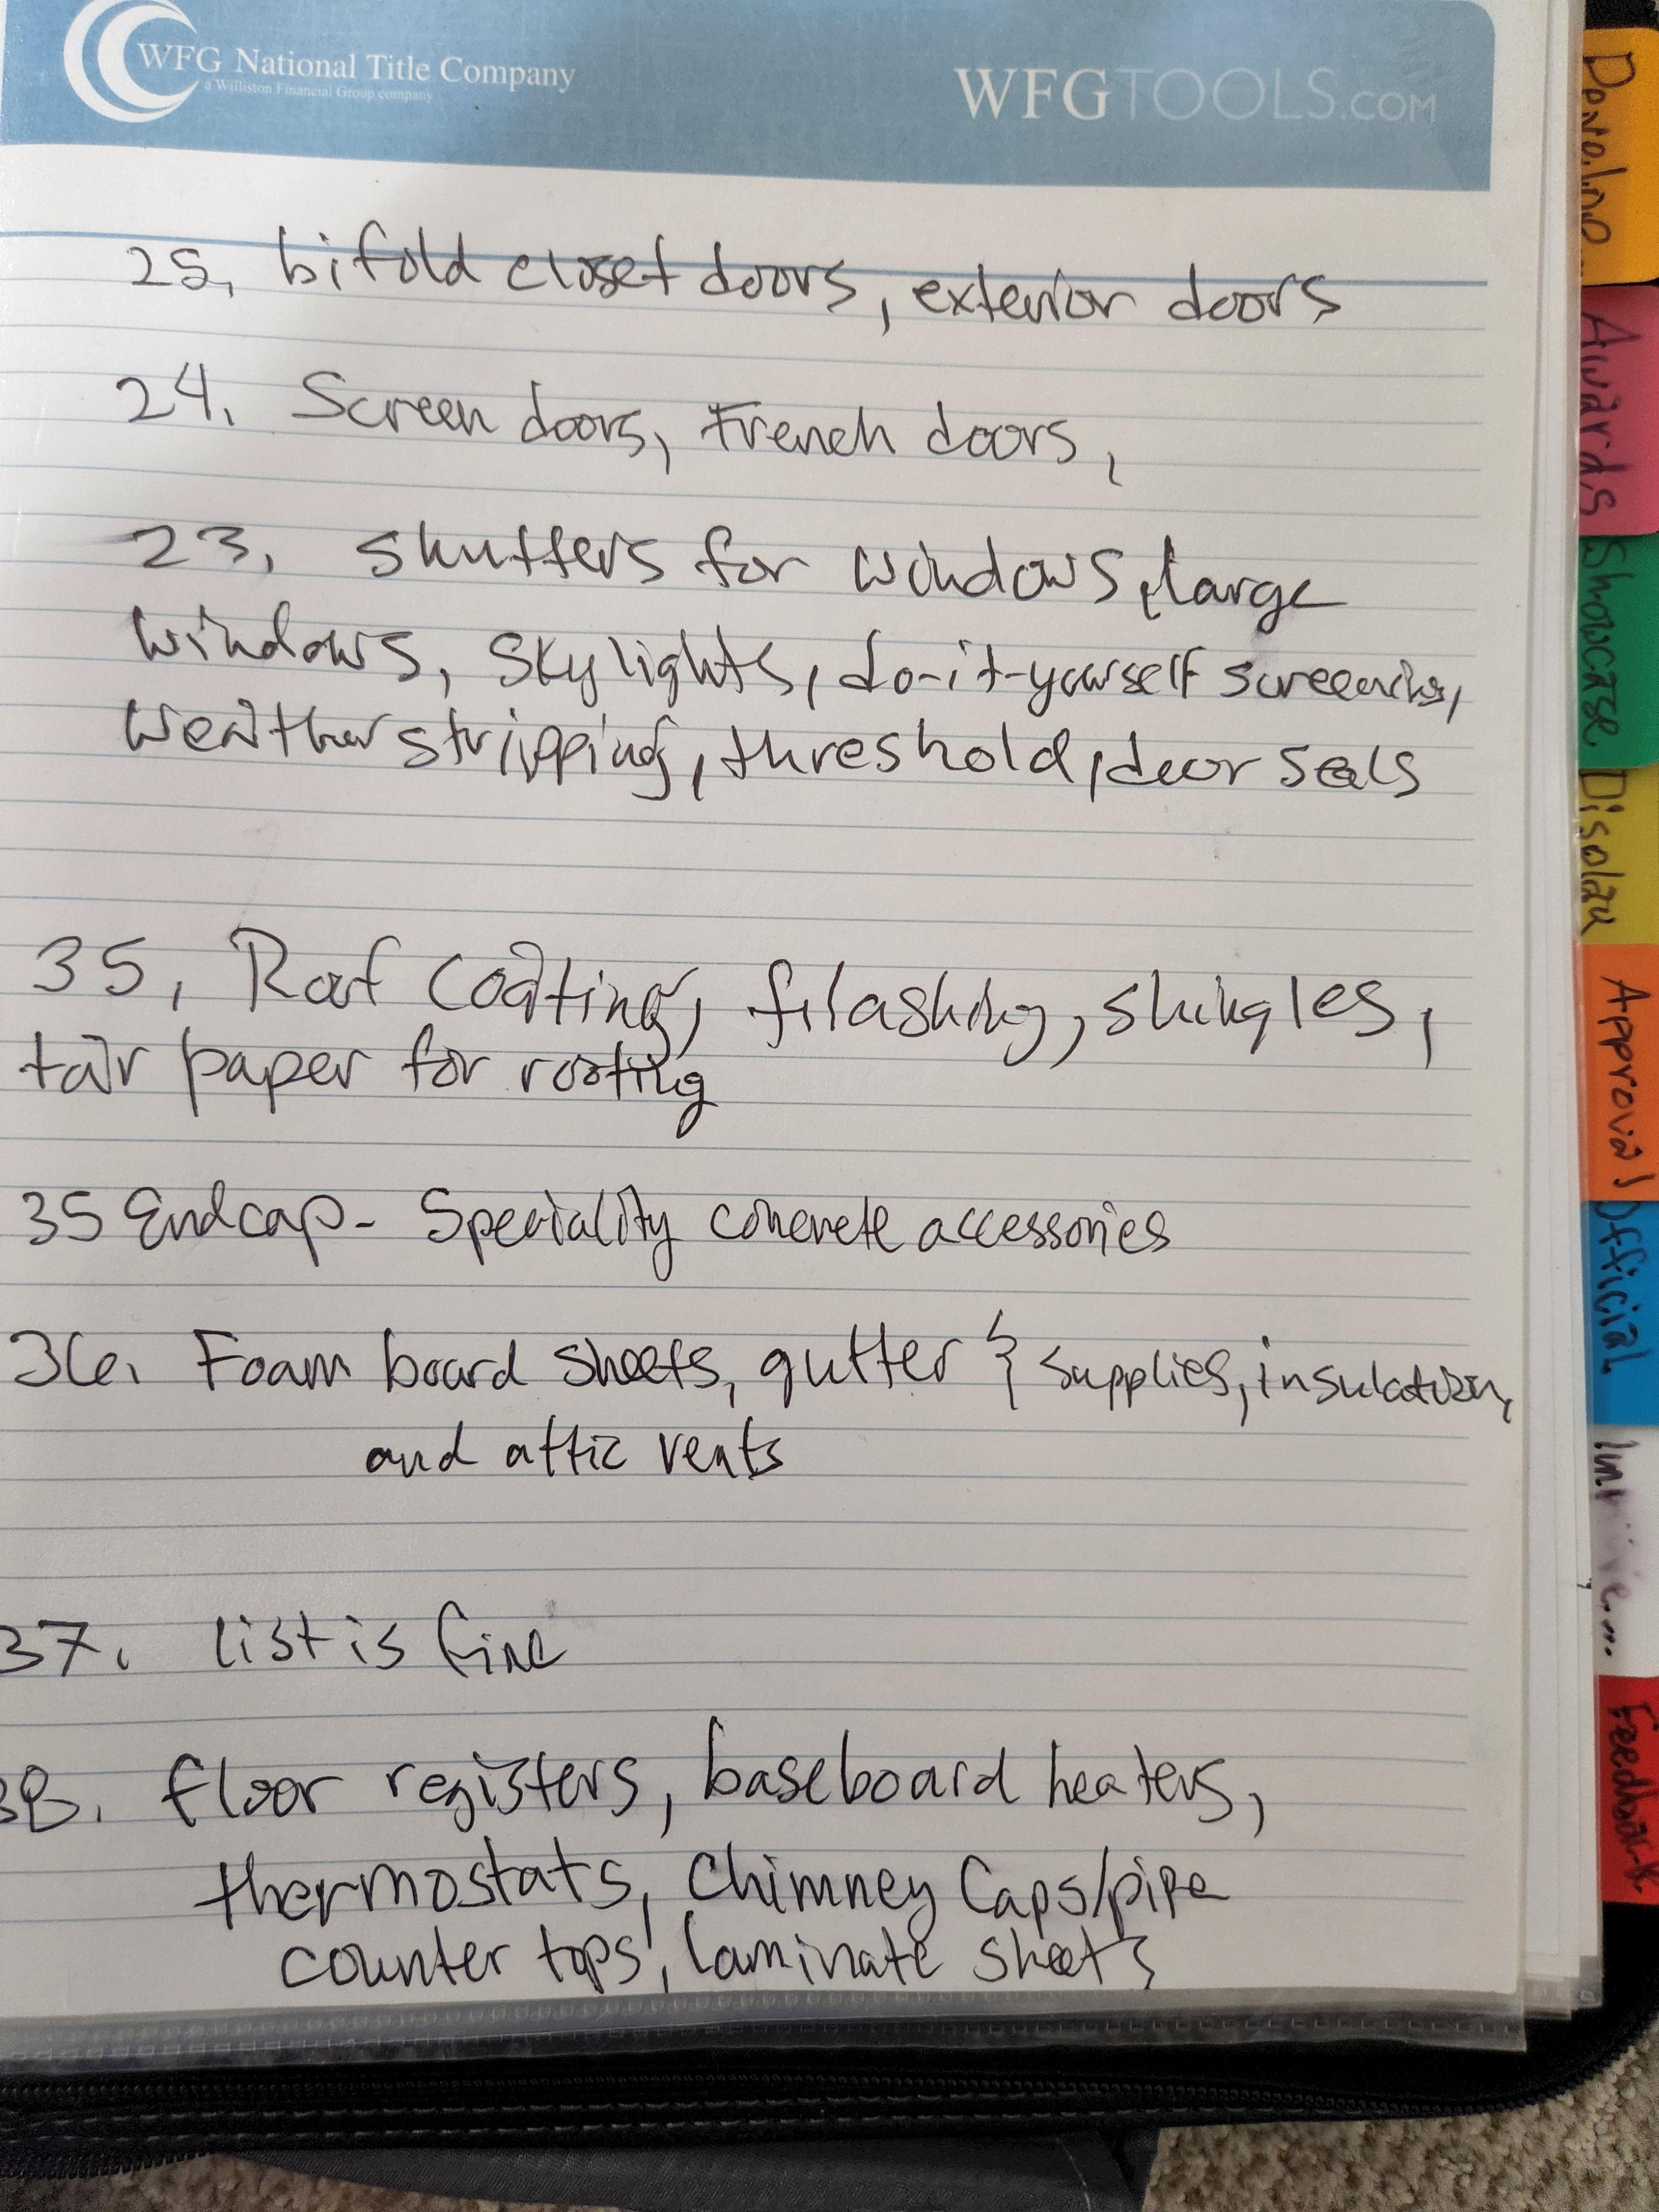 WFG National Title Company
a Williston Financial Group company
WFGTOOLS.COM
25, bifold closet doors, exterior doors
24. Screen doors, French doors,
23, shutters for windows, large
windows, skylights, do-it-yourself screening,
weather stripping, threshold, door seals
35, Roof coating, filashing, shingles,
tar paper for roofing
35 Endcap - Speciality concrete accessories
36. Foam board sheets, gutter & supplies, insulation,
and attic vents
37. list is fine
38. floor registers, baseboard heaters,
thermostats, Chimney Caps/pipe
counter tops, laminate sheets
Awards
Showcase
Approval
Official